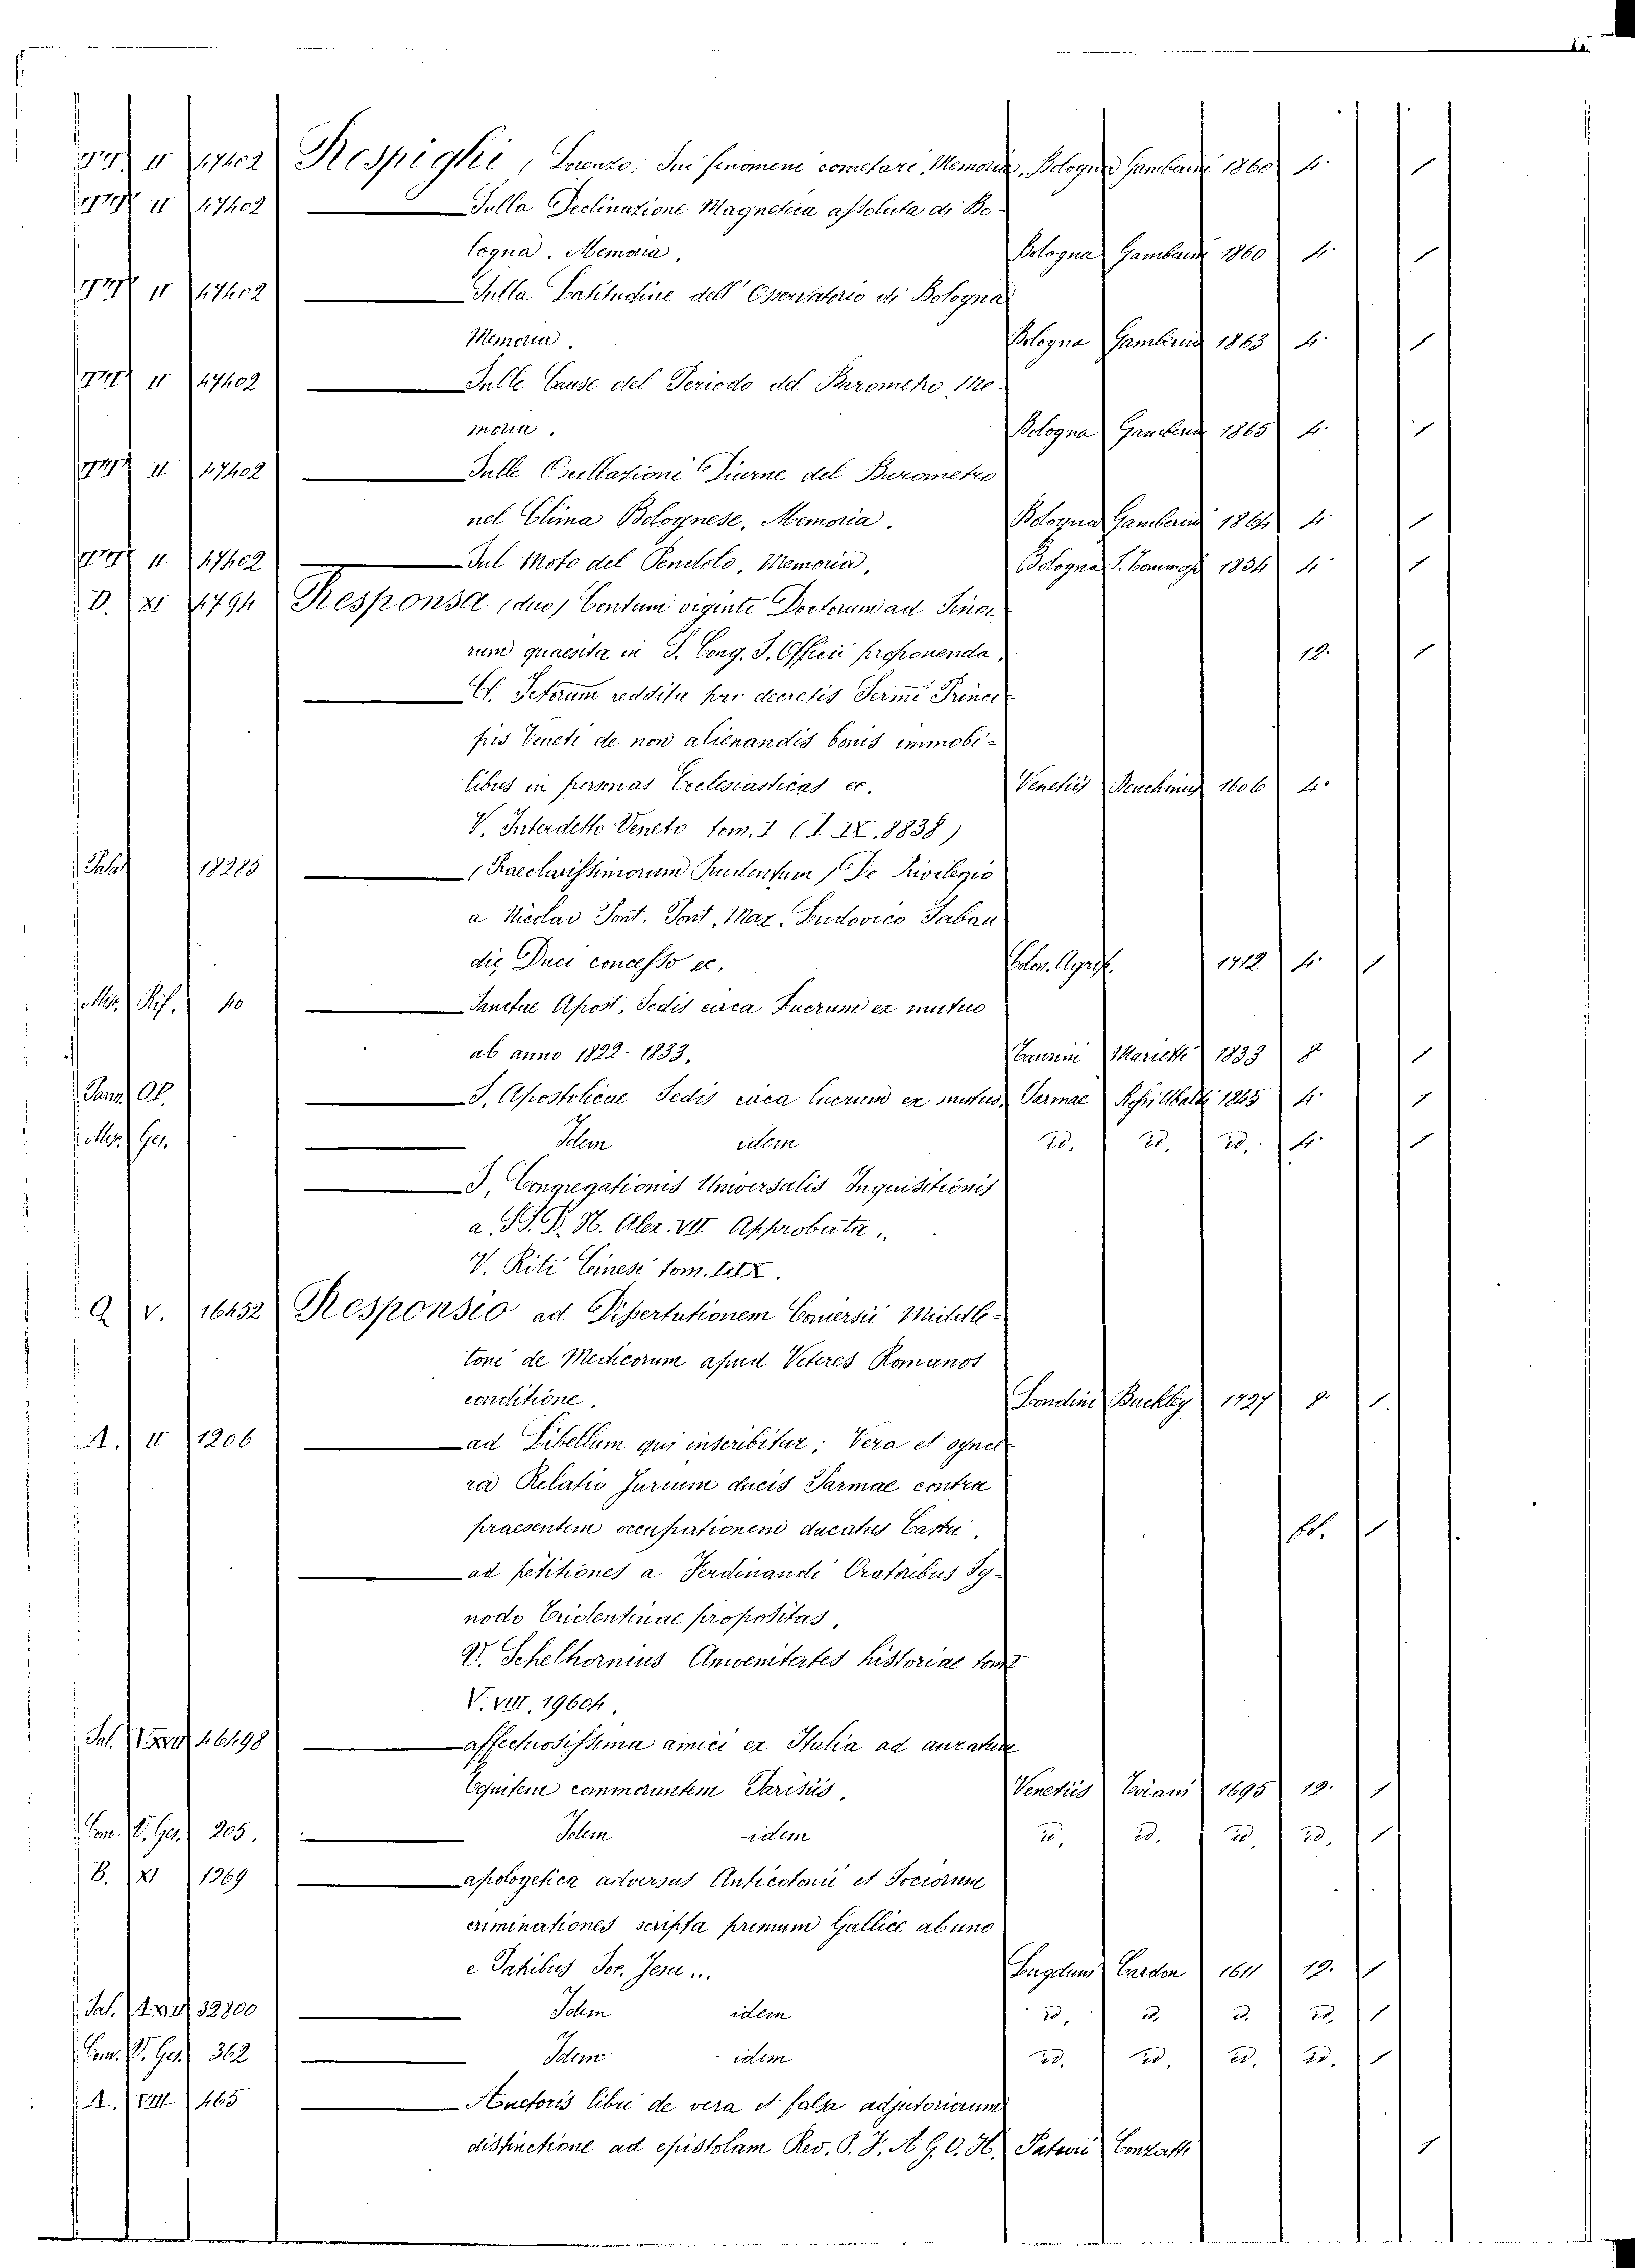 II 47402 Respighi, Lorenzo, Sui fenomeni cometari, Memoria, Bologna Gamberini 1860 4. 1
II 47402 Sulla Declinazione Magnetica assoluta di Bo-
logna. Memoria. Bologna Gamberini 1860 4. 1
II 47402 Sulla Latitudine dell' Osservatorio di Bologna
Memoria. Bologna Gamberini 1863 4. 1
II 47402 Sulle Cause del Periodo del Barometro, Me-
moria. Bologna Gamberini 1865 4. 1
II 47402 Sulle Oscillazioni Diurne del Barometro
nel Clima Bolognese, Memoria. Bologna Gamberini 1864 4. 1
II 47402 Sul Moto del Pendolo, Memoria. Bologna S. Tommaso 1854 4. 1
D. XI 4794 Responsa (duo) Centum viginti Doctorum ad Sina-
rum quaesita in S. Cong. S. Officii proponenda. 12. 1
Cl. Jctorum reddita pro decretis Sermi Princi-
pis Veneti de non alienandis bonis immobi-
libus in personas Ecclesiasticas ec. Venetiis 1606 4.
V. Interdetto Veneto tom. I (I. IX. 8838)
18285 (Praeclarissimorum Prudentum) De Privilegio
a Nicolao Pont. Pont. Max. Ludovico Sabau-
dię Duci concesso ec. Colon. Agrip. 1712 4. 1
Min. Rif. 40 Sanctae Apost. Sedis circa Lucrum ex mutuo
ab anno 1822-1833. Taurini Marietti 1833 8. 1
Op. S. Apostolicae Sedis circa lucrum ex mutuo, Parmae 1845 4. 1
Min. Ges. Idem idem id. id. id. 4. 1
S. Congregationis Universalis Inquisitionis
a SS. D. N. Alex. VII Approbata.
V. Riti Cinesi tom.
Q V. 16452 Responsio ad Dissertationem Conyersii Middle-
toni de Medicorum apud Veteres Romanos
conditione. Londini Buckley 1727 8. 1.
A. II 1206 ad Libellum qui inscribitur: Vera et synce-
ra Relatio Jurium ducis Parmae contra
praesentem occupationem ducatus Castri. fol. 1
ad petitiones a Ferdinandi Oratoribus Sy-
nodo Tridentinae propositas.
V. Schelhornius Amoenitates historiae tom. I
V. VIII. 19604.
Sal. 46498 affectuosissima amici ex Italia ad auratum
Equitem commorantem Parisiis. Venetiis Tivani 1695 12. 1
Com. V. Ges. 205. Idem idem id. id. id. id. 1
B. XI 1269 apologetica adversus Anticotoni et Sociorum
criminationes scripta primum Gallice ab uno
e Patribus Soc. Jesu... Lugduni Cardon 1611 12. 1
Sal. 32800 Idem idem id. id. id. id. 1
Com. V. Ges. 362 Idem idem id. id. id. id. 1
A. VIII. 465 Auctoris libri de vera et falsa adjutoriorum
distinctione ad epistolam Rev. P. J. A. G. O. H. Patavii Conzatti 1